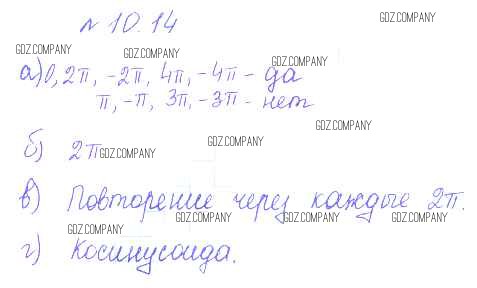 № 10.14
GDZ.COMPANY
GDZ.COMPANY GDZ.COMPANY GDZ.COMPANY
а) 0, 2π, -2π, 4π, -4π - да
π, -π, 3π, -3π - нет
GDZ.COMPANY
GDZ.COMPANY
б) 2π GDZ.COMPANY
в) Повторение через каждые 2π.
GDZ.COMPANY GDZ.COMPANY GDZ.COMPANY
GDZ.COMPANY
г) Косинусоида.